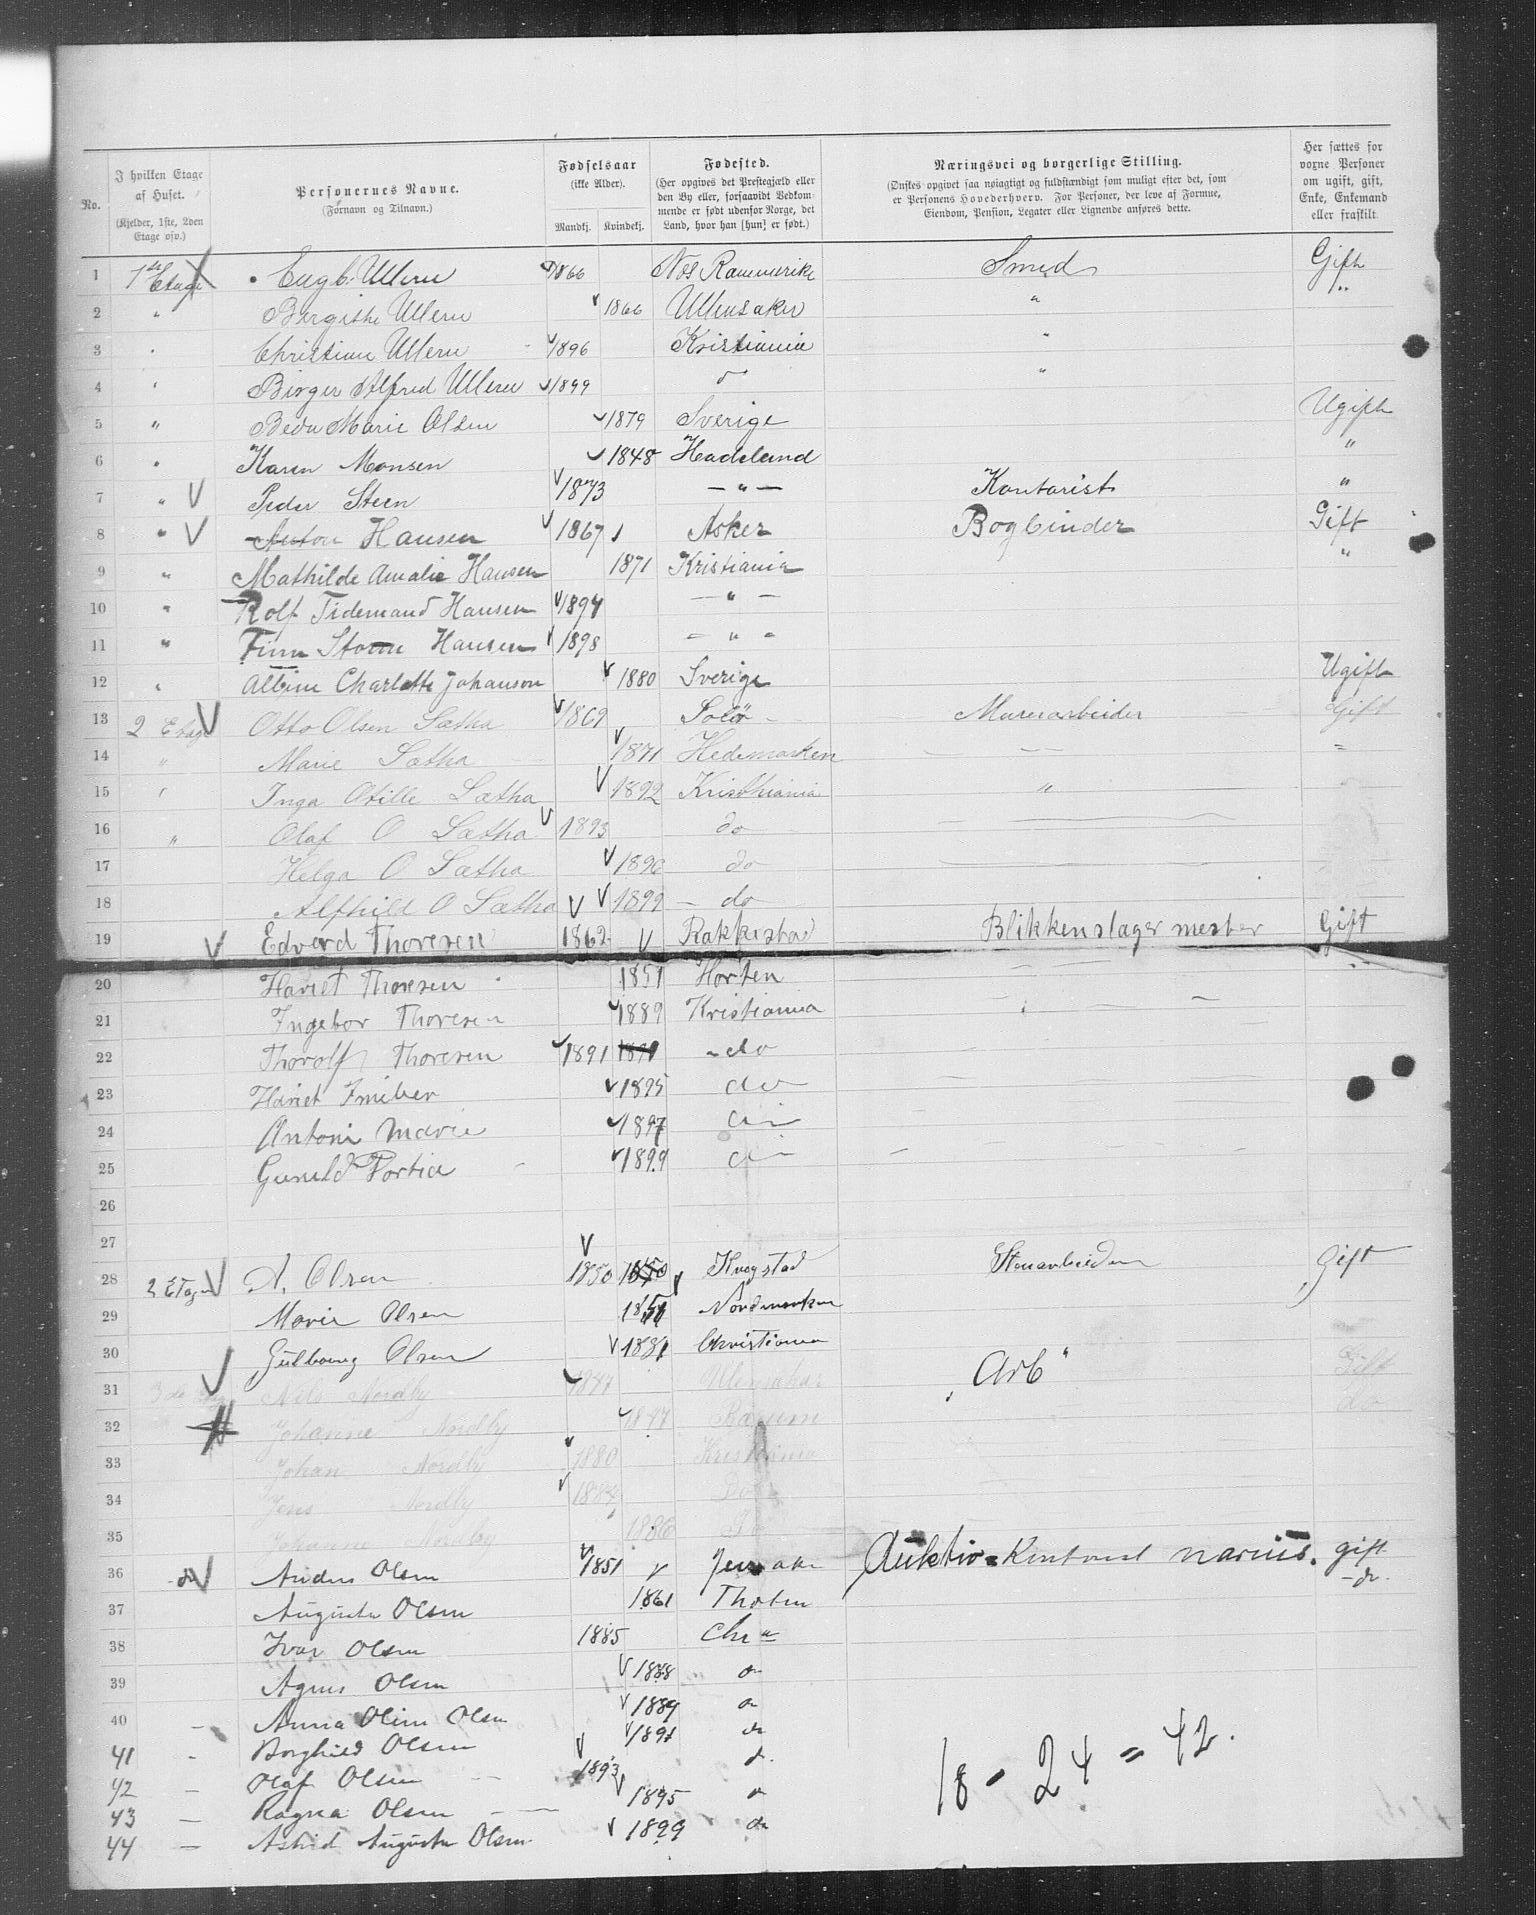 No.
I hvilken Etage af Huset.
(Kjelder, 1ste, 2den Etage osv.)
Personernes Navne.
(Fornavn og Tilnavn.)
Fødselsaar
(ikke Alder).
Mandkj. Kvindekj.
Fødested.
(Her opgives det Prestegjæld eller
den By eller, forsaavidt Vedkom-
mende er født udenfor Norge, det
Land, hvor han [hun] er født.)
Næringsvei og borgerlige Stilling.
(Ønskes opgivet saa nøiagtigt og fuldstændigt som muligt efter det, som
er Personens Hovederhverv. For Personer, der leve af Formue,
Eiendom, Pension, Legater eller Lignende anføres dette.
Her sættes for
voxne Personer
om ugift, gift,
Enke, Enkemand
eller fraskilt.
1 1ste Etage Engb. Ullern 1866 Nes Raumerike Smed Gift
2 " Birgithe Ullern 1866 Ullensaker " "
3 " Christian Ullern 1896 Kristiania "
4 " Birger Alfred Ullern 1899 do "
5 " Beda Marie Olsen 1879 Sverige Ugift
6 " Karen Monsen 1848 Hadeland "
7 " Peder Steen 1873 — " — Kontorist "
8 " Anton Hansen 1867 Asker Bogbinder Gift
9 " Mathilde Amalie Hansen 1871 Kristiania "
10 " Rolf Tidemand Hansen 1894 — " —
11 " Finn Storm Hansen 1898 — " —
12 " Albine Charlotte Johanson 1880 Sverige Ugift
13 2 Etage Otto Olsen Sætha 1869 Solør Murerarbeider Gift
14 " Marie Sætha 1871 Hedemarken — — "
15 " Inga Otille Sætha 1892 Kristhiania "
16 " Olaf O Sætha 1893 do
17 Helga O Sætha 1896 do
18 Alfhild O Sætha 1899 — do
19 Edverd Thoresen 1862 Rakkestad Blikkenslager mester Gift
20 Hariet Thoresen 1851 Horten
21 Ingebor Thoresen 1889 Kristiania
22 Thorolf Thoresen 1891 do
23 Hariet 1895 do
24 Antoni Marie 1897 do
25 Portia 1899 do
26
27
28 2 Etage A. Olsen 1850 1850 Krogstad Stenarbeider Gift
29 Marie Olsen Nordmarken
30 Gulborg Olsen 1881 Christiania
31 3de Etg Nils Nordby Ullensaker "Arb" Gift
32 Johanne Nordby 1847 Bærum do
33 Johan Nordby 1880 Kristiania
34 Jens Nordby 1884 Do
35 Johanne Nordby 1886 Do
36 do Anders Olsen 1851 Auktio= gift
37 Augusta Olsen 1861 Thoten do
38 Ivar Olsen 1885 Chr a
39 Agnes Olsen 1888 do
40 — Anna Oline Olsen 1889 do
41 — Borghild Olsen 1891 do
42 — Olaf Olsen 1893 do
43 — Ragna Olsen 1895 do
44 — Astrid Augusta Olsen 1899 do
18 - 24 = 42.